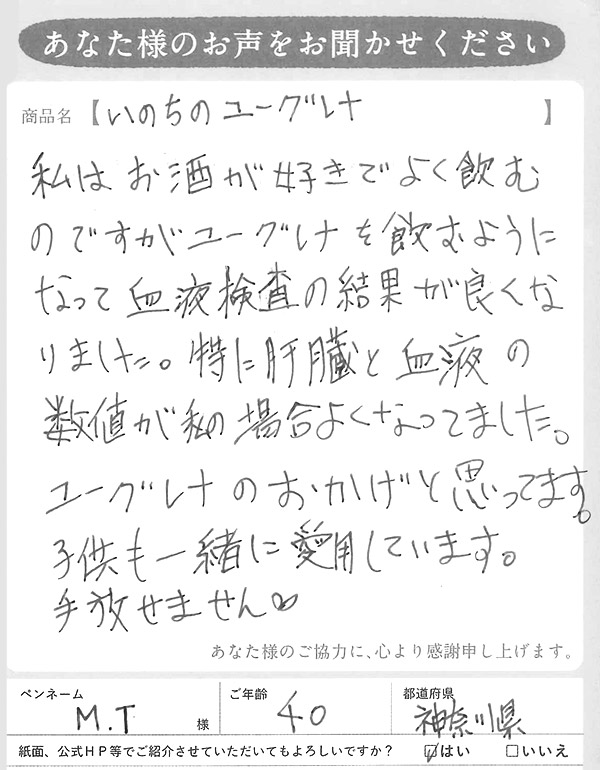 あなた様のお声をお聞かせください
商品名【いのちのユーグレナ】
私はお酒が好きでよく飲む
のですがユーグレナを飲むように
なって血液検査の結果が良くな
りました。特に肝臓と血液の
数値が私の場合よくなってました。
ユーグレナのおかげと思ってます。
子供も一緒に愛用しています。
手放せません♡
あなた様のご協力に、心より感謝申し上げます。
ペンネーム M.T 様 ご年齢 40 都道府県 神奈川県
紙面、公式HP等でご紹介させていただいてもよろしいですか? ☑はい □いいえ